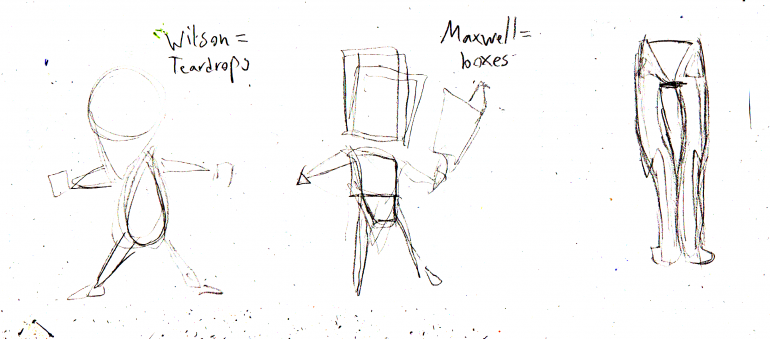 Wilson =
Teardrops
Maxwell =
boxes